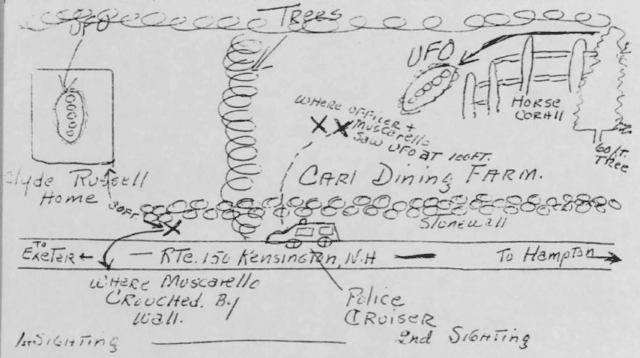 UFO
Trees
UFO
HORSE
CORALL
60 FT.
TREE
WHERE OFFICER +
MUSCARELLO
SAW UFO AT 100 FT.
CARL Dining FARM.
Clyde Russell
Home
30 FT.
Stonewall
TO
EXETER ←
— RTE. 150 Kensington, N.H —
To Hampton
WHERE MUSCARELLO
CROUCHED. By
WALL.
Police
CRUISER
1st SIGHTING
2nd SIGHTING